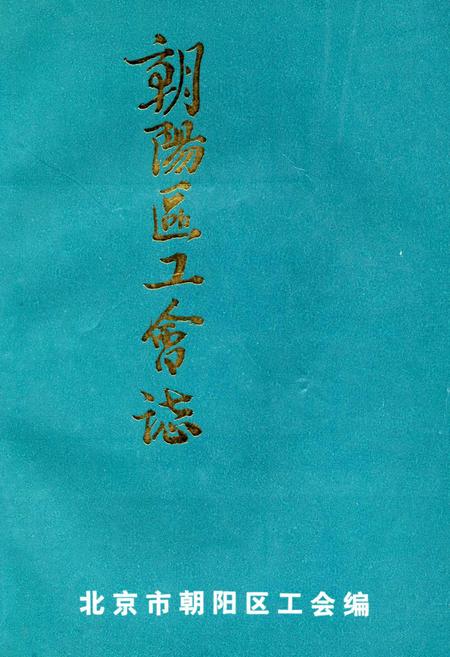 朝陽區工會誌
北京市朝阳区工会编